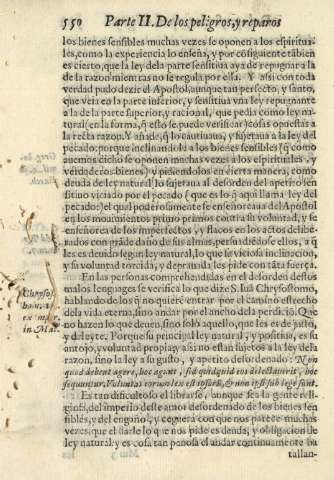 550 Parte II. De los peligros, y reparos
los bienes sensibles muchas vezes se oponen a los espiritua-
les, como la experiencia lo enseña, y por cõsiguiente tãbien
es cierto, que la ley de la parte sensitiua aya de repugnar a la
de la razon mientras no se regula por ella. Y assi con toda
verdad pudo dezir el Apostol, aunque tan perfecto, y santo,
que veia en la parte inferior, y sensitiua vna ley repugnante
a la de la parte superior, y racional, que pedia como ley na-
tural (en la forma, q̃ esto se puede verificar) cosas opuestas a
la recta razon. Y añade, q̃ lo cautiuaua, y sujetaua a la ley del
pecado: porque inclinandole a los bienes sensibles (q̃ como
auemos dicho se oponen muchas vezes a los espirituales, y
verdaderos bienes) y pidiendolos en cierta manera, como
deuda de ley natural lo sujetaua al desorden del apetito sen
sitiuo viciado por el pecado (que es lo q̃ aqui llama ley del
pecado) el qual poderosamente se enseñoreaua del Apostol
en los mouimientos primo primos contra su voluntad, y se
enseñorea de los imperfectos, y flacos en los actos delibe-
rados con grãde daño de sus almas, persuadiẽdose ellos, a q̃
les es deuido segun ley natural, lo que su viciosa inclinacion,
y su voluntad torcida, y deprauada les pide con tãta fuerça.
En las personas comprehendidas en el desorden destos
malos lenguages se verifica lo que dize S. Iuã Chrysostomo,
hablando de los q̃ no quiere entrar por el camino estrecho
de la vida eterna, sino andar por el ancho de la perdiciõ. Que
no hazen lo que deuen, sino solo aquello, que les es de gusto,
y deleyte. Porque su principal ley natural, y positiua, es su
antojo, y voluntad propia, y assi no estan sujetos a la ley de la
razon, sino la ley a su gusto, y apetito desordenado: Non
quod debent agere, hoc agunt, sed quidquid eos delectauerit, hoc
sequuntur. Voluntas eorum lex est ipsorũ, & non ipsi sub lege sunt.
Es tan dificultoso el librarse, aunque sea la gente reli-
giosa, del imperio deste amor desordenado de los bienes sen
sibles, y del engaño, y ceguera con que nos parece muchas
vezes, que el darle lo que nos pide es deuda, y obligacion de
ley natural: y es cosa tan penosa el andar continuamente ba
tallan-
Chrysos.
in Mat.